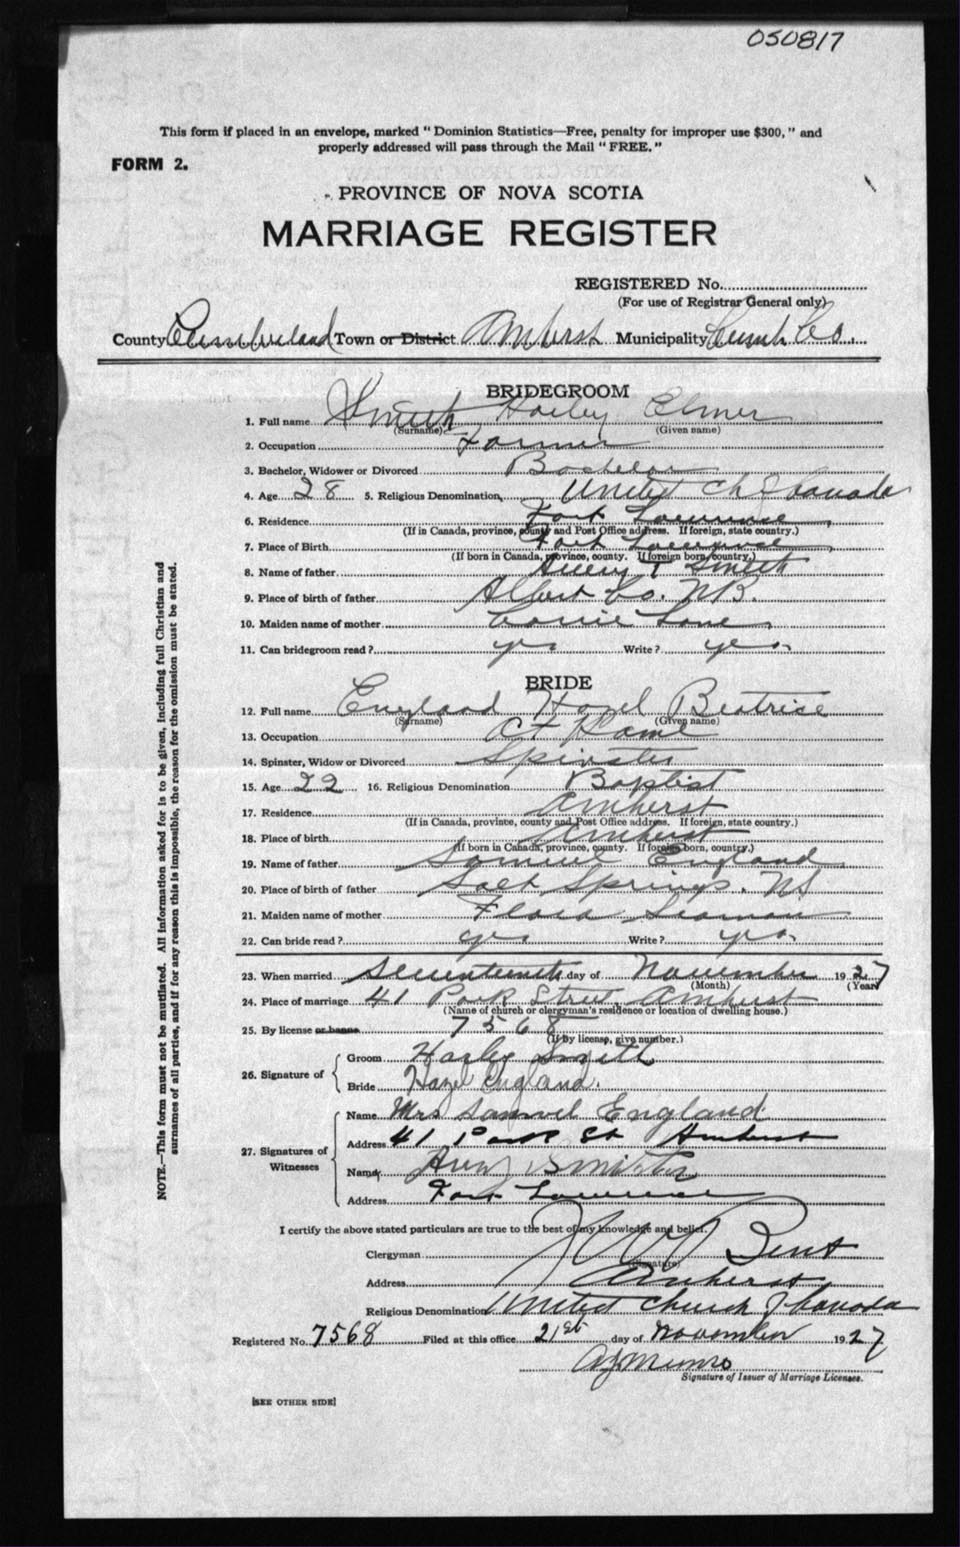 050817
This form if placed in an envelope, marked "Dominion Statistics—Free, penalty for improper use $300," and
properly addressed will pass through the Mail "FREE."
FORM 2.
PROVINCE OF NOVA SCOTIA
MARRIAGE REGISTER
REGISTERED No.
(For use of Registrar General only)
County Cumberland Town or District Amherst Municipality Cumb Co.
BRIDEGROOM
1. Full name Smith Harley Elmer
(Surname) (Given name)
2. Occupation Farmer
3. Bachelor, Widower or Divorced Bachelor
4. Age 28 5. Religious Denomination United Ch of Canada
6. Residence Fort Lawrence
(If in Canada, province, county and Post Office address. If foreign, state country.)
7. Place of Birth Fort Lawrence
(If born in Canada, province, county. If foreign born, country.)
8. Name of father Avery T Smith
9. Place of birth of father Albert Co. N.B.
10. Maiden name of mother Carrie Lowe
11. Can bridegroom read? yes Write? yes
BRIDE
12. Full name England Hazel Beatrice
(Surname) (Given name)
13. Occupation At Home
14. Spinster, Widow or Divorced Spinster
15. Age 22 16. Religious Denomination Baptist
17. Residence Amherst
(If in Canada, province, county and Post Office address. If foreign, state country.)
18. Place of birth Amherst
(If born in Canada, province, county. If foreign born, country.)
19. Name of father Samuel England
20. Place of birth of father Salt Springs. NS
21. Maiden name of mother Flora Seaman
22. Can bride read? yes Write? yes
23. When married Seventeenth day of November 1927
(Month) (Year)
24. Place of marriage 41 Park Street, Amherst
(Name of church or clergyman's residence or location of dwelling house.)
25. By license or banns 7568
(If by license, give number.)
26. Signature of Groom Harley Smith
Bride Hazel England.
27. Signatures of Witnesses
Name Mrs Samuel England
Address 41 Park St Amherst
Name Avery Smith
Address Fort Lawrence
I certify the above stated particulars are true to the best of my knowledge and belief.
Clergyman Bent
(Signature)
Address Amherst
Religious Denomination United Church of Canada
Registered No. 7568 Filed at this office 21st day of November 1927
Munro
Signature of Issuer of Marriage Licenses.
[SEE OTHER SIDE]
NOTE.—This form must not be mutilated. All information asked for is to be given, including full Christian and
surnames of all parties, and if for any reason this is impossible, the reason for the omission must be stated.